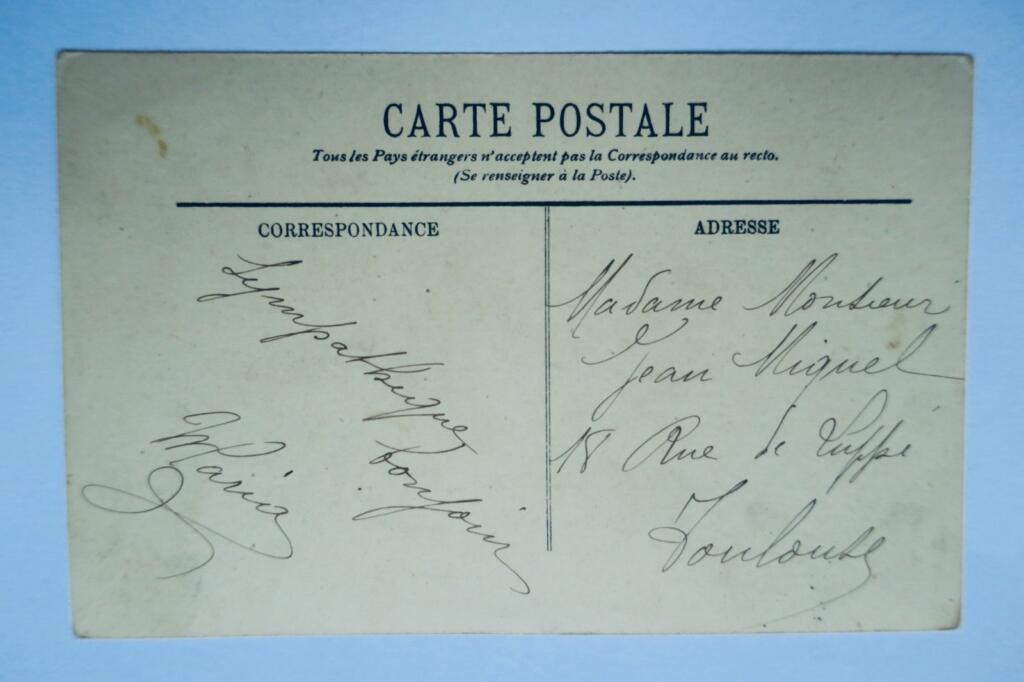 CARTE POSTALE
Tous les Pays étrangers n'acceptent pas la Correspondance au recto.
(Se renseigner à la Poste).
CORRESPONDANCE
Sympathiques
bonjour
Maria
ADRESSE
Madame Monsieur
Jean Miquel
18 Rue de Luppé
Toulouse